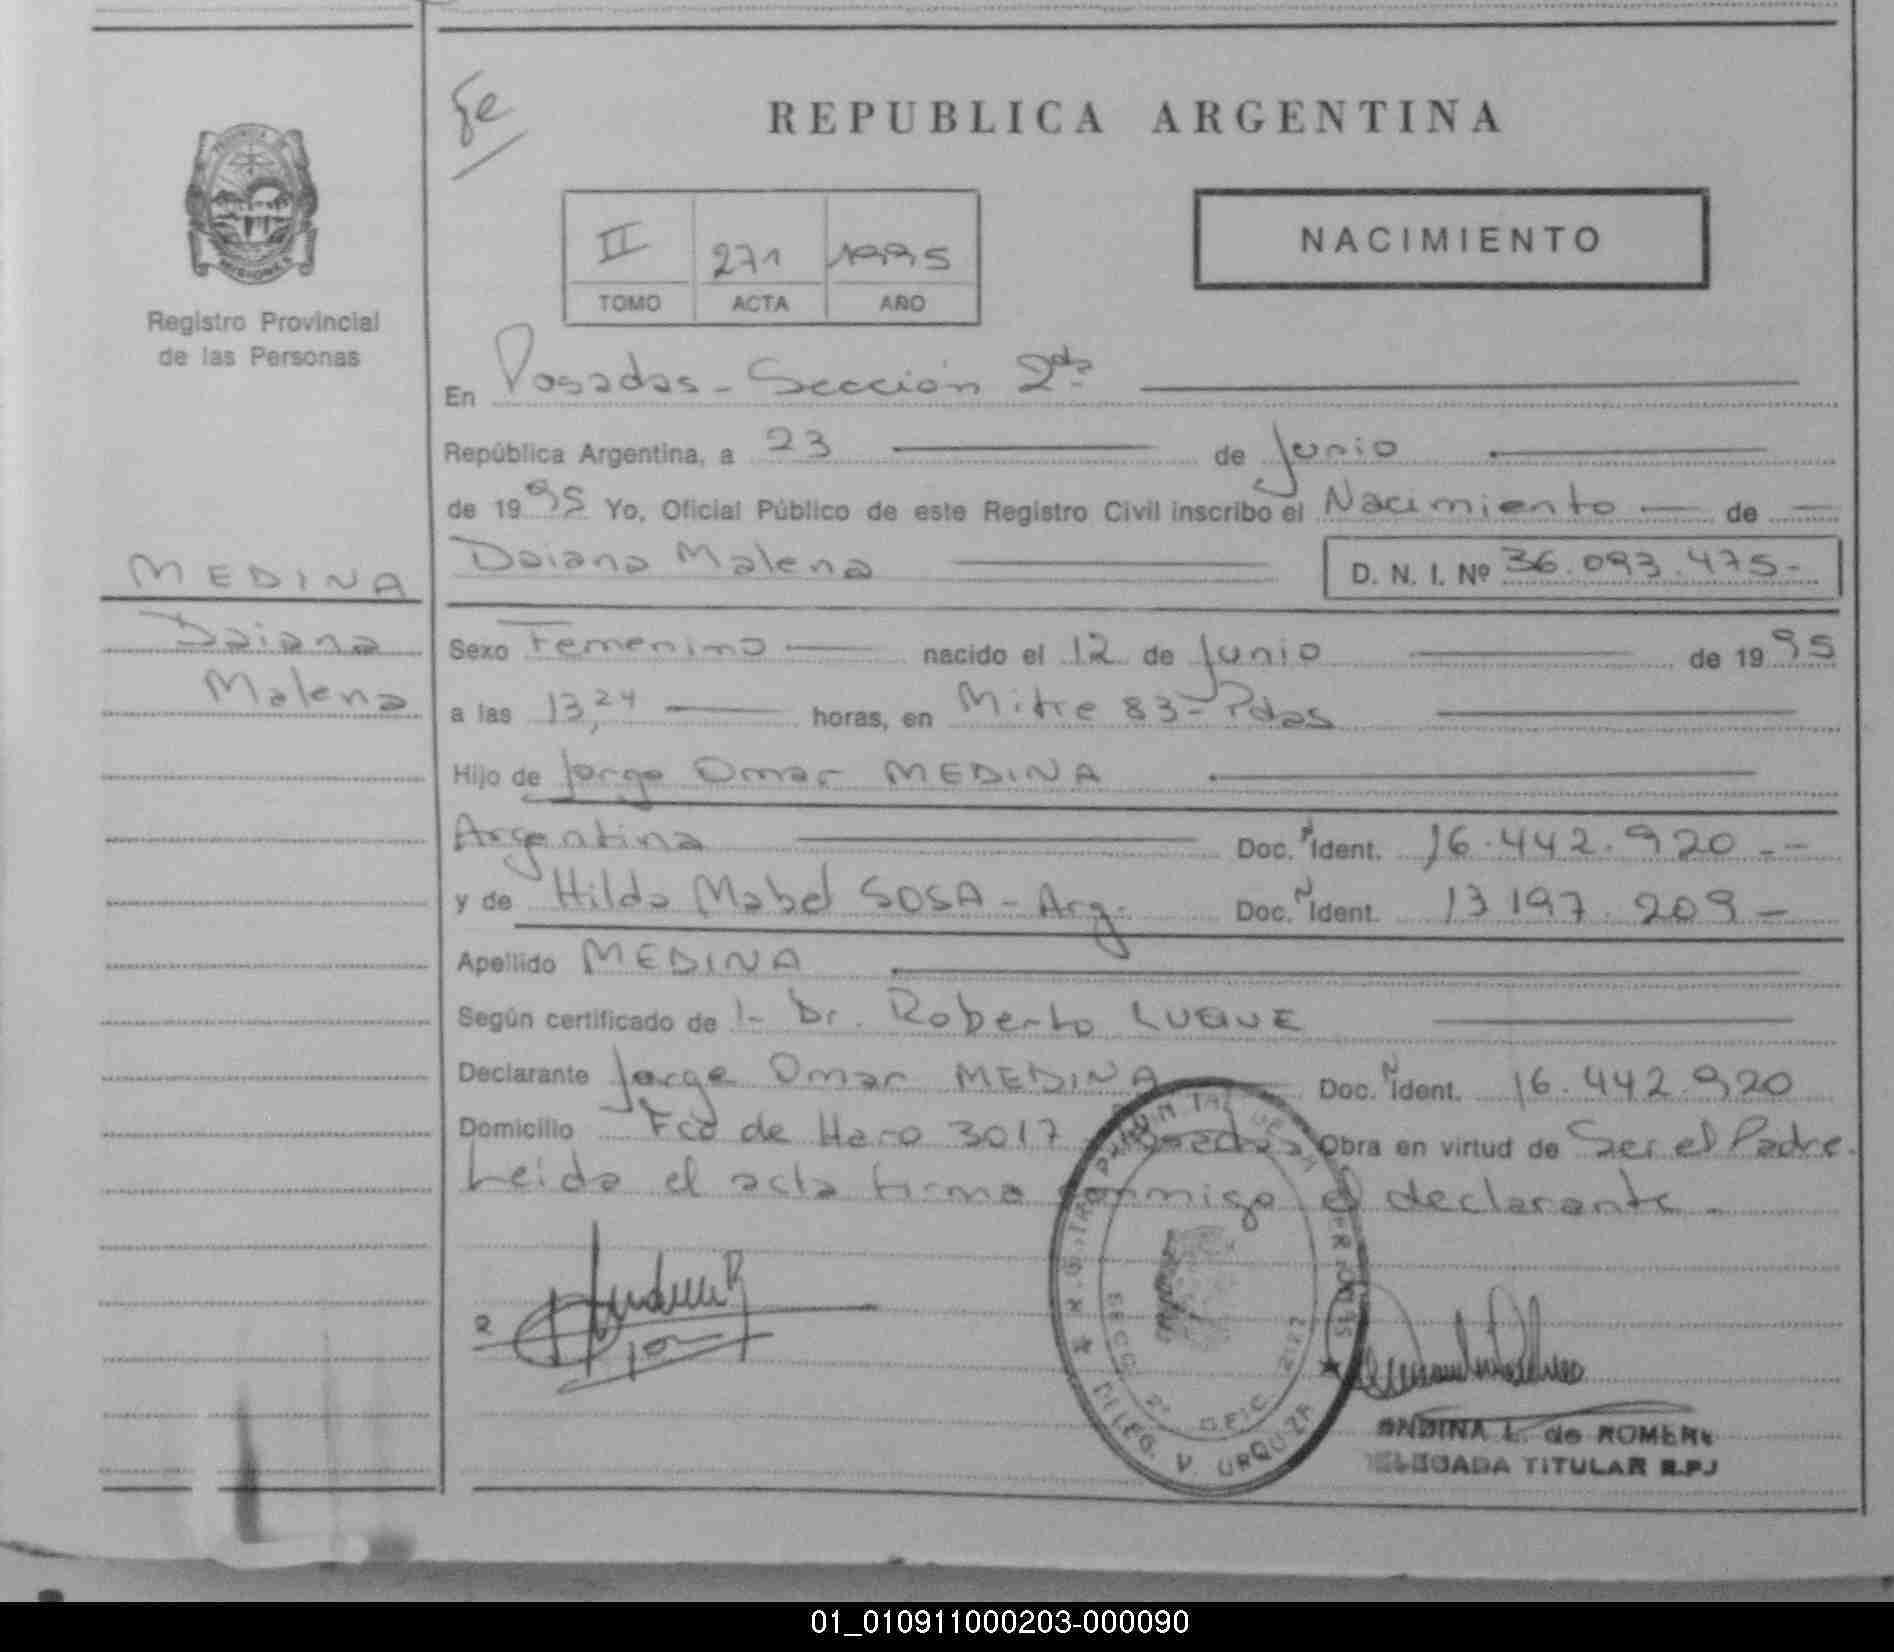 fe
REPUBLICA ARGENTINA
MISIONES
Registro Provincial
de las Personas
II 271 1995
TOMO ACTA AÑO
NACIMIENTO
En Posadas - Sección 2da
República Argentina, a 23 de Junio
de 1995 Yo, Oficial Público de este Registro Civil inscribo el Nacimiento — de —
MEDINA
Daiana Malena D. N. I. Nº 36.093.475-
Daiana
Malena
Sexo Femenino nacido el 12 de Junio de 1995
a las 13,24 horas, en Mitre 83 - Pdas
Hijo de Jorge Omar MEDINA
Argentina Doc. Ident. 16.442.920 --
y de Hilda Mabel SOSA - Arg. Doc. Ident. 13197.209 -
Apellido MEDINA
Según certificado de 1- Dr. Roberto LUQUE
Declarante Jorge Omar MEDINA Doc. Ident. 16.442.920
Domicilio Fco de Haro 3017 - Posadas Obra en virtud de Ser el Padre.
Leida el acta firma conmigo el declarante.
SECC. 2ª OFIC. 2127
DELEG. V. URQUIZA
ONDINA L. de ROMERO
DELEGADA TITULAR R.P.J
01_010911000203-000090